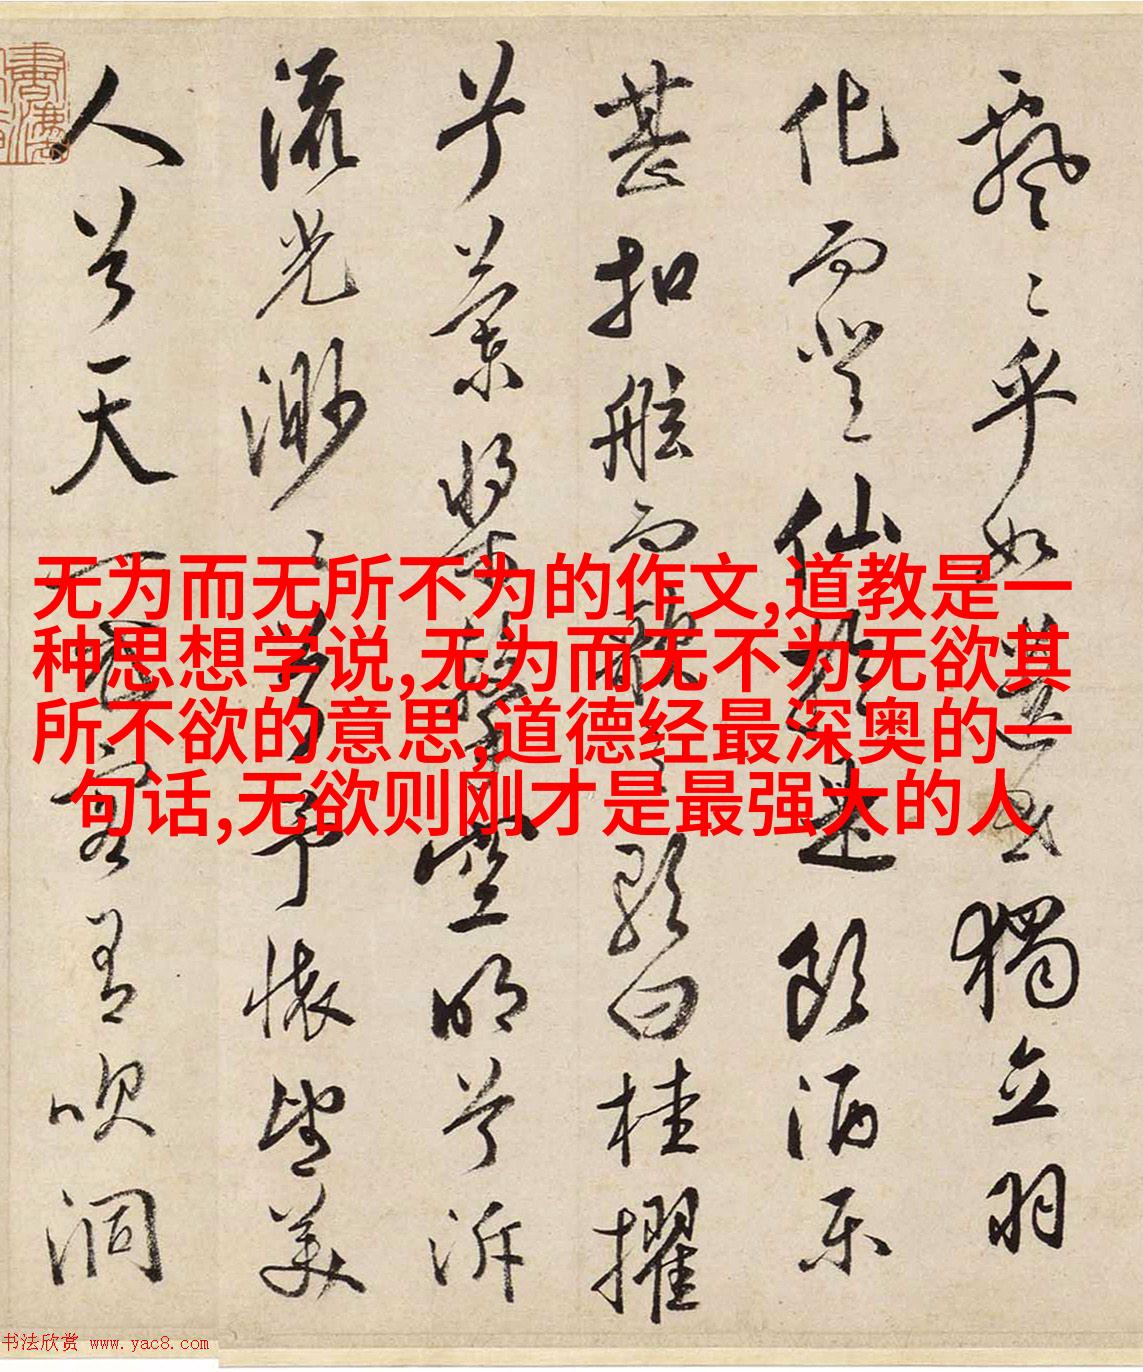 飄〻乎如遺世獨立羽
化而登仙於是飲酒樂
甚扣舷而歌之歌曰桂擢
兮蘭槳擊空明兮泝
流光渺〻兮予懷望美
人兮天一方客有吹洞
无为而无所不为的作文,道教是一
种思想学说,无为而无不为无欲其
所不欲的意思,道德经最深奥的一
句话,无欲则刚才是最强大的人
书法欣赏 www.yac8.com